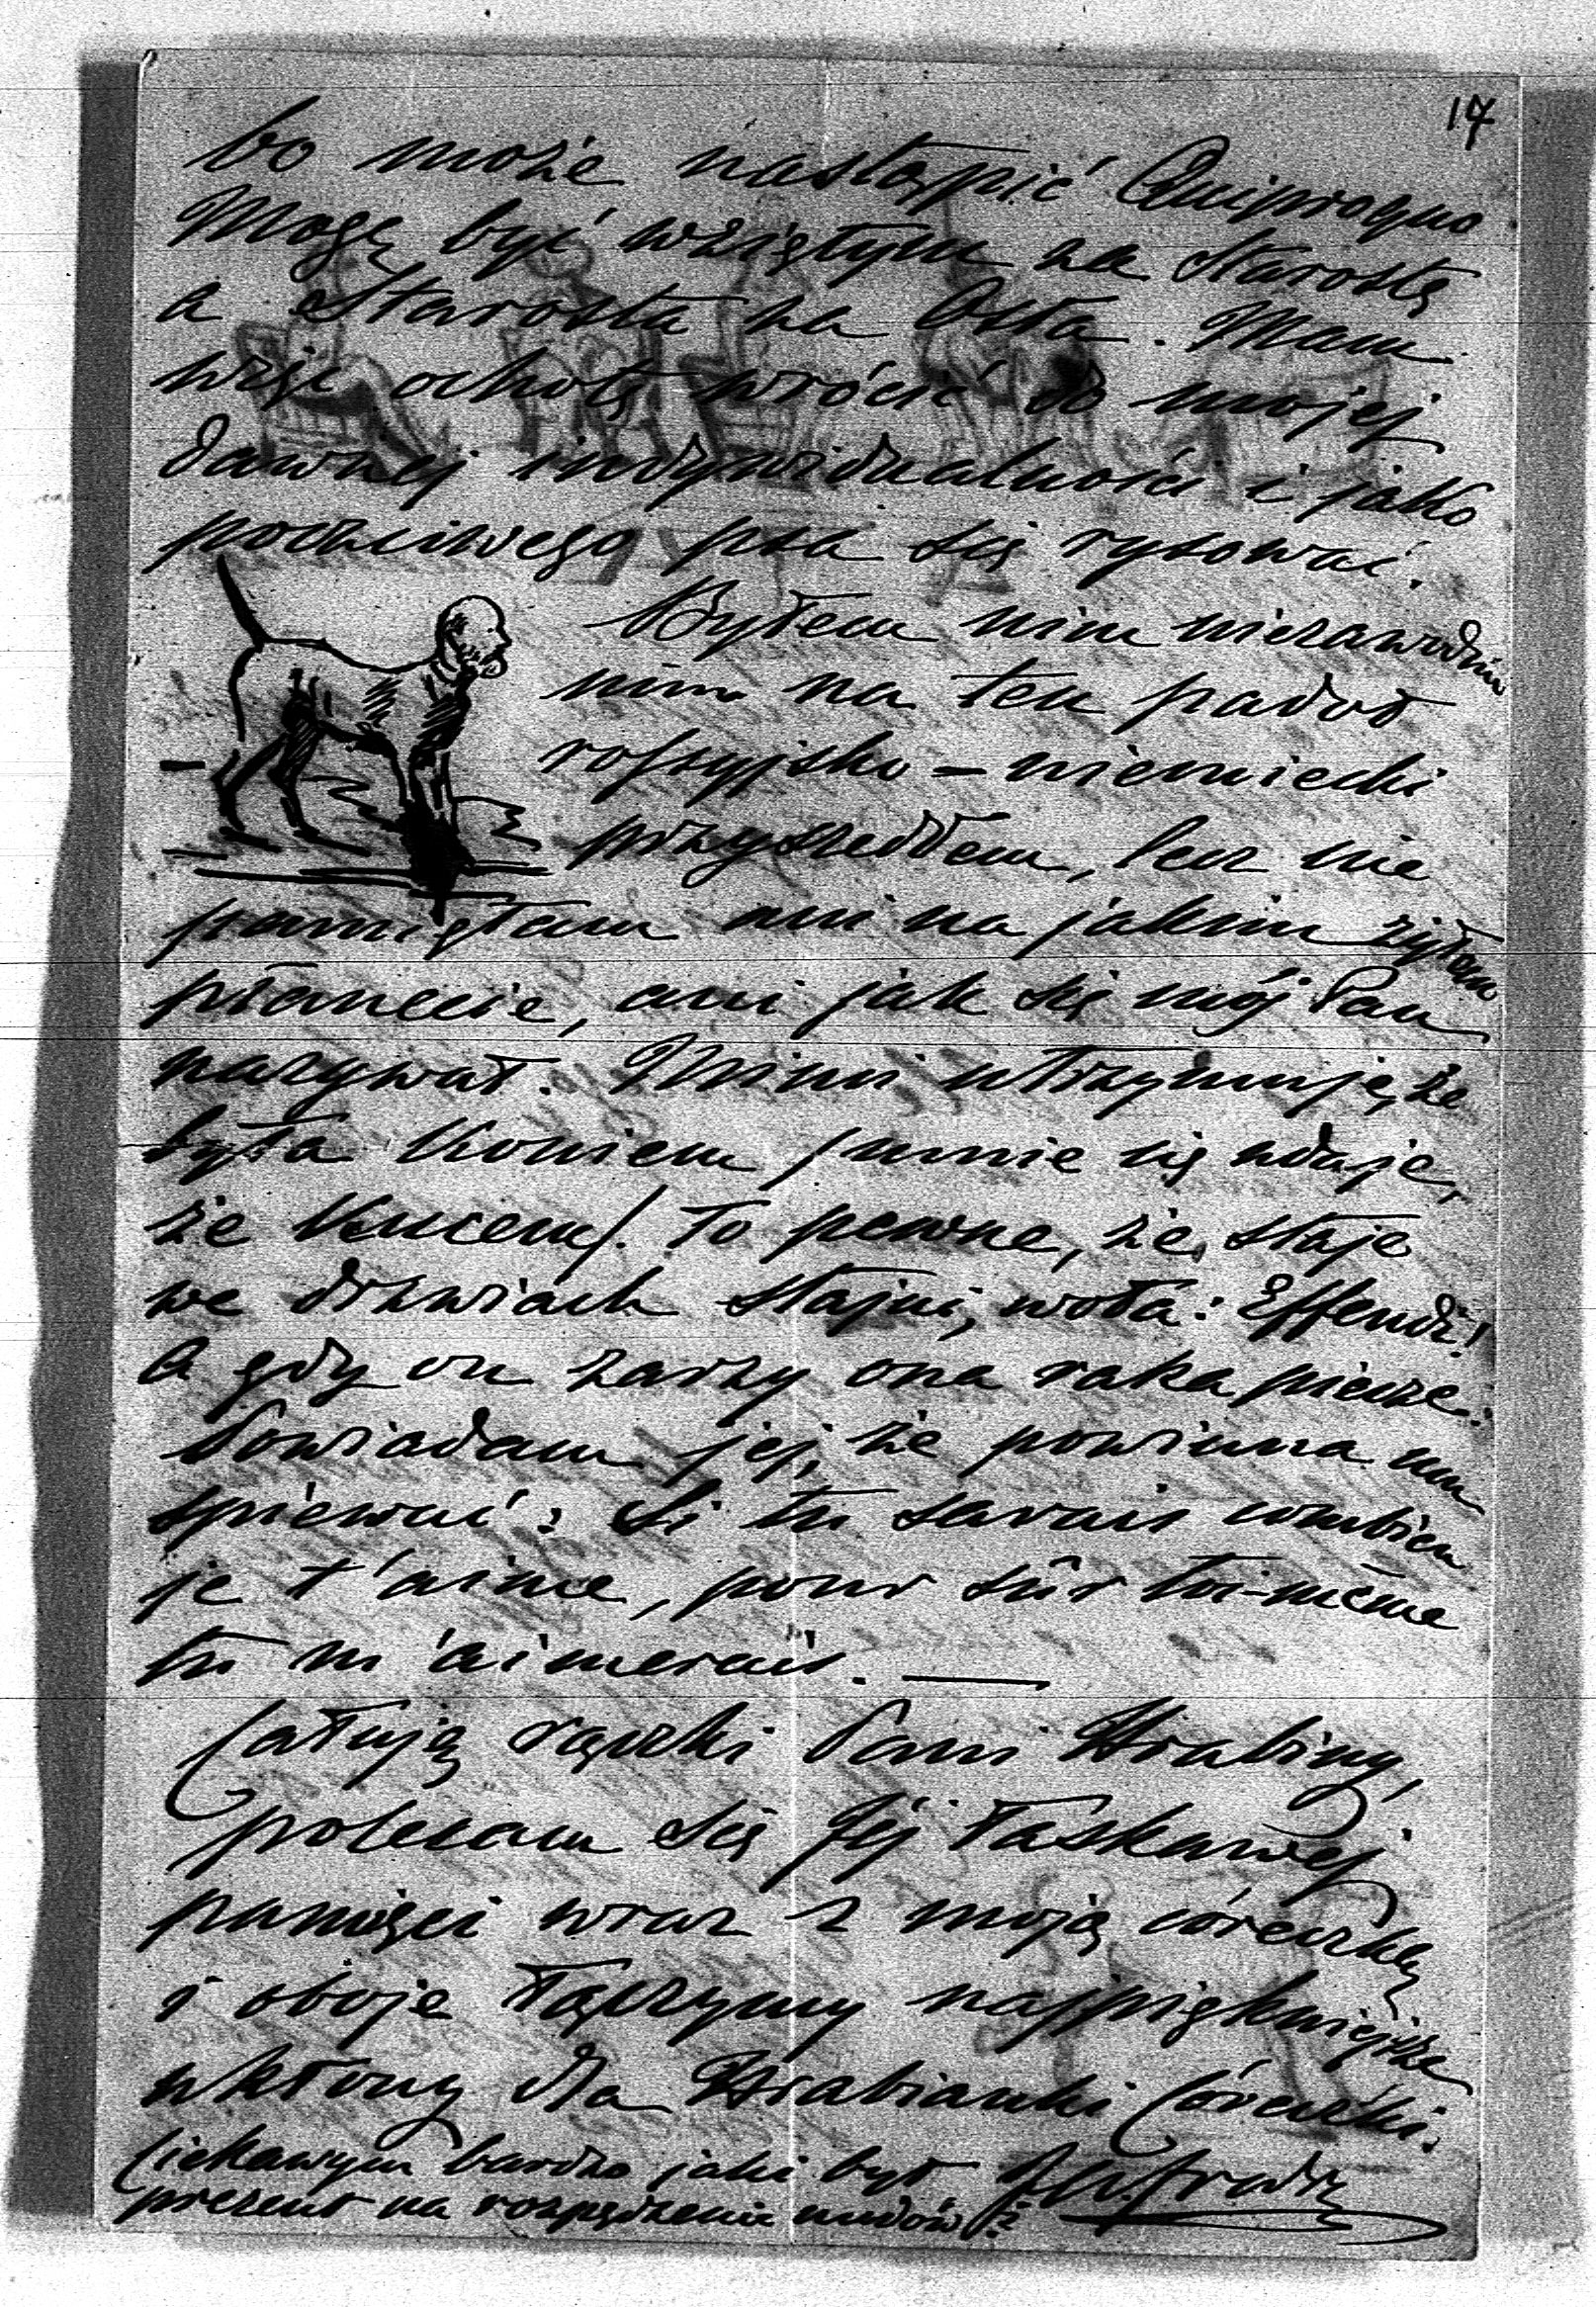 17
bo może nastąpić Quiproquo
Mogę być wziętym za Starostę
a Starosta za Osła. Mam
więc ochotę wrócić do mojej
dawnej indywidualności i jako
poczciwego psa się rysować.
Byłem nim niezawodnie
nim na ten padoł
rossyjsko-niemiecki
przyszedłem, lecz nie
pamiętam ani na jakim żyłem
planecie, ani jak się mój Pan
nazywał. Mimi utrzymuje, że
była koniem /mnie się udaje,
że kucem/. To pewne, że staje
we drzwiach stajni, woła: Effendi!
A gdy on zarży ona raka piecze.
Powiadam jej, że powinna mu
śpiewać: Si tu savais combien
je t'aime, pour sûr toi-même
tu m'aimerais.
Całuję rączki Pani Hrabiny,
polecam się Jéj łaskawej
pamięci wraz z moją córeczką
i oboje łączymy najpiękniejsze
ukłony dla Hrabianki Córeczki.
Ciekawym bardzo jaki był
prezent na rozpędzenie nudów?